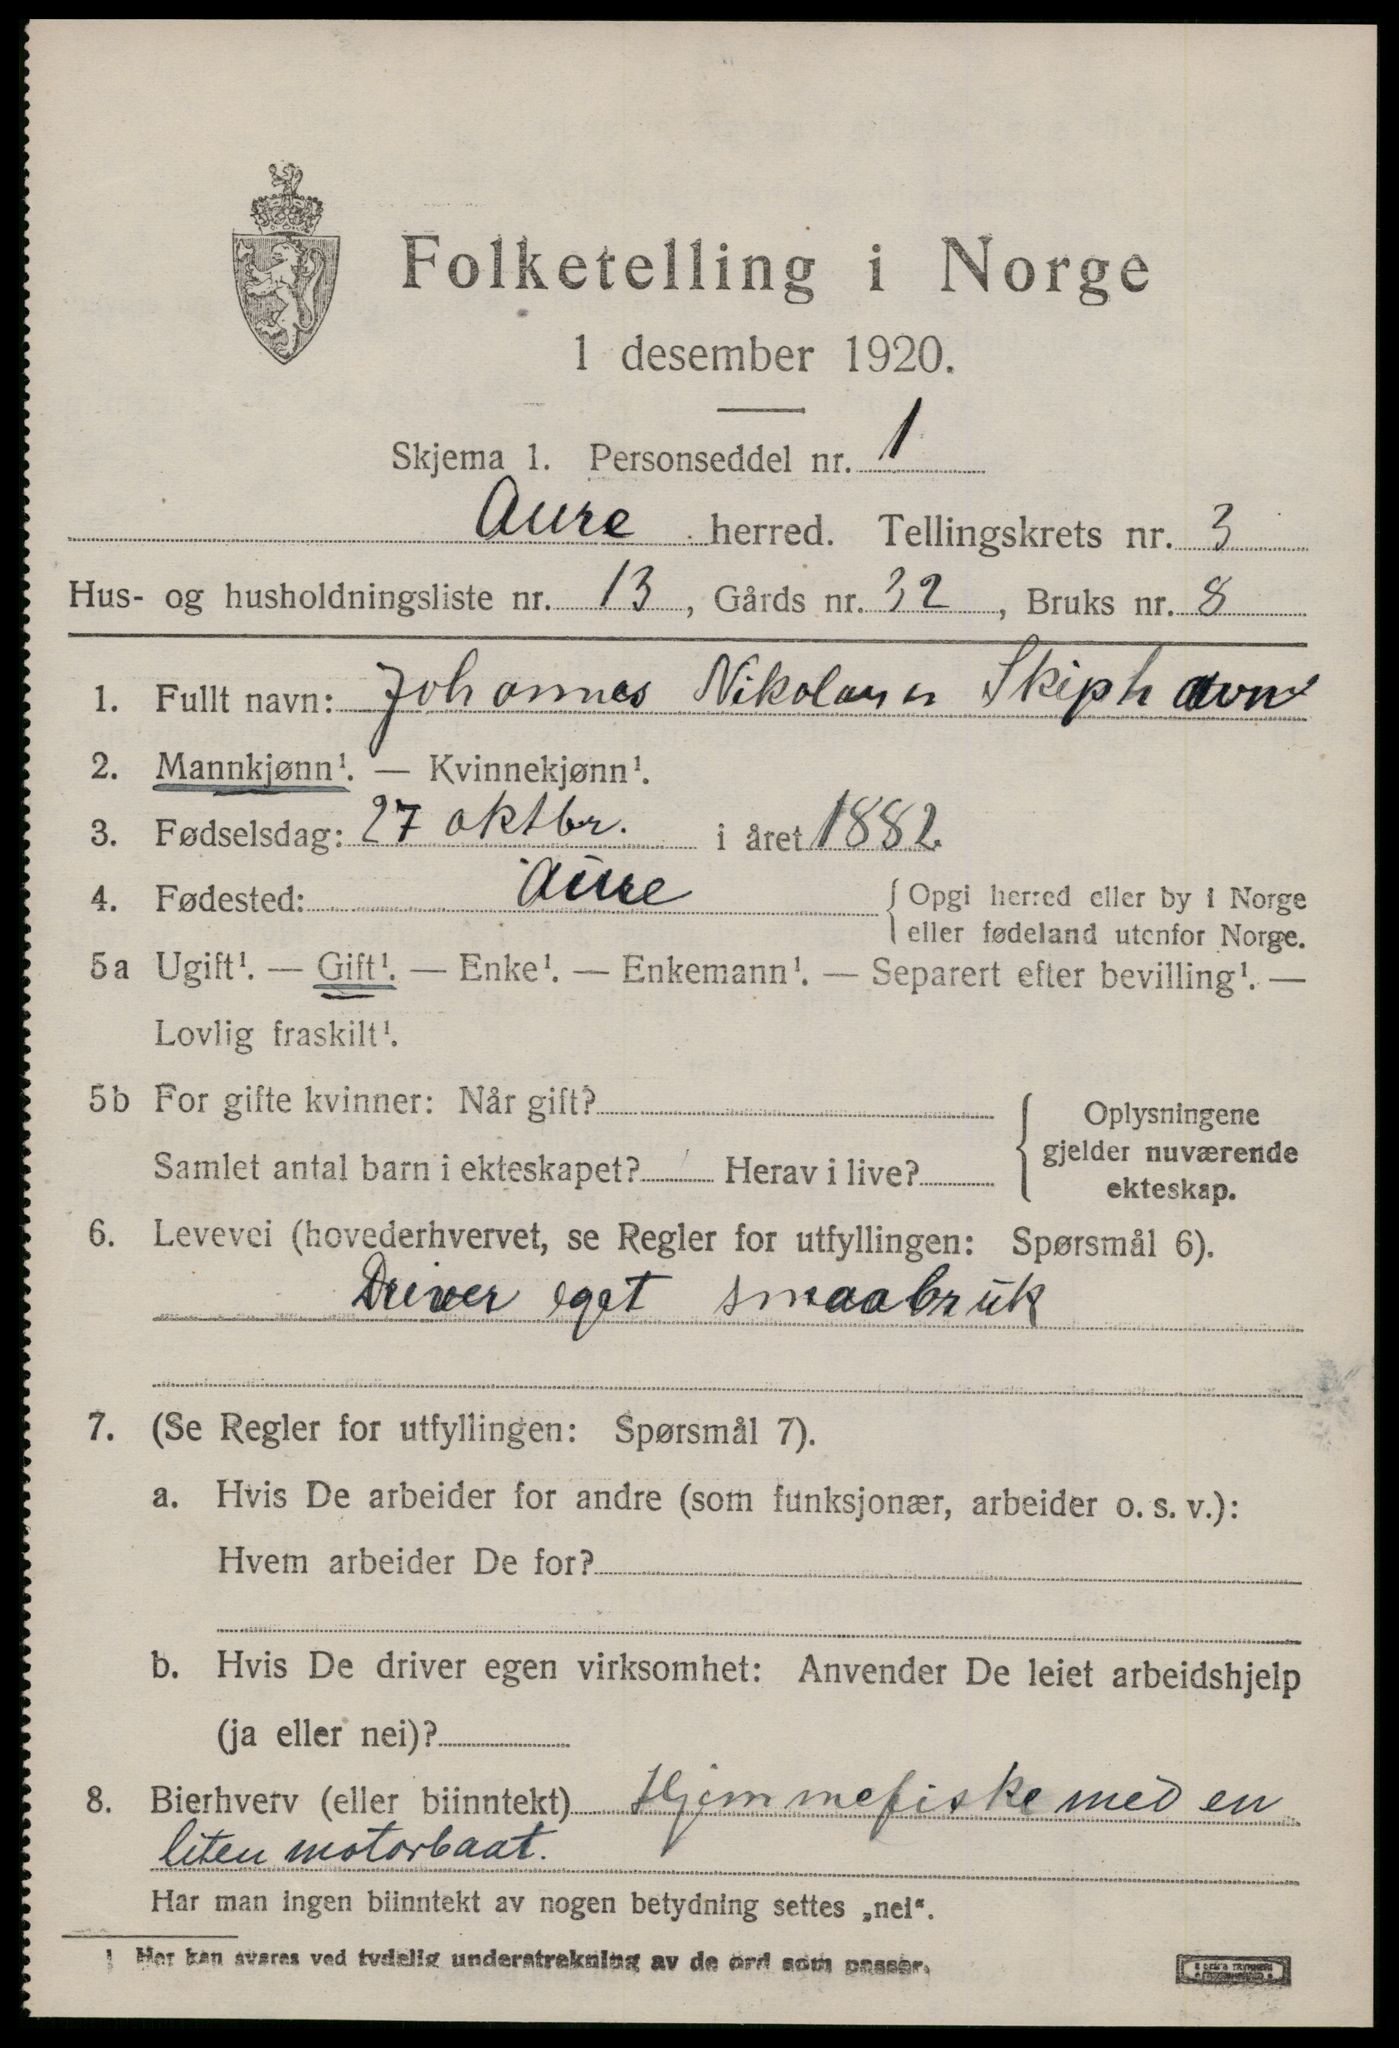 Folketelling i Norge
1 desember 1920.
Skjema 1. Personseddel nr. 1
Aure herred. Tellingskrets nr. 3
Hus- og husholdningsliste nr. 13, Gårds nr. 32, Bruks nr. 8
1. Fullt navn: Johannes Skiphavn
2. Mannkjønn¹. — Kvinnekjønn¹.
3. Fødselsdag: 27 oktbr. i året 1882
4. Fødested: Aure {Opgi herred eller by i Norge
eller fødeland utenfor Norge.
5a Ugift¹. — Gift¹. — Enke¹. — Enkemann¹. — Separert efter bevilling¹. —
Lovlig fraskilt¹.
5b For gifte kvinner: Når gift?
Samlet antal barn i ekteskapet? Herav i live?
{Oplysningene
gjelder nuværende
ekteskap.
6. Levevei (hovederhvervet, se Regler for utfyllingen: Spørsmål 6).
Driver eget smaabruk
7. (Se Regler for utfyllingen: Spørsmål 7).
a. Hvis De arbeider for andre (som funksjonær, arbeider o. s. v.):
Hvem arbeider De for?
b. Hvis De driver egen virksomhet: Anvender De leiet arbeidshjelp
(ja eller nei)?
8. Bierhverv (eller biinntekt) Hjemmefiske med en
liten motorbaat.
Har man ingen biinntekt av nogen betydning settes „nei“.
1 Her kan svares ved tydelig understrekning av de ord som passer.